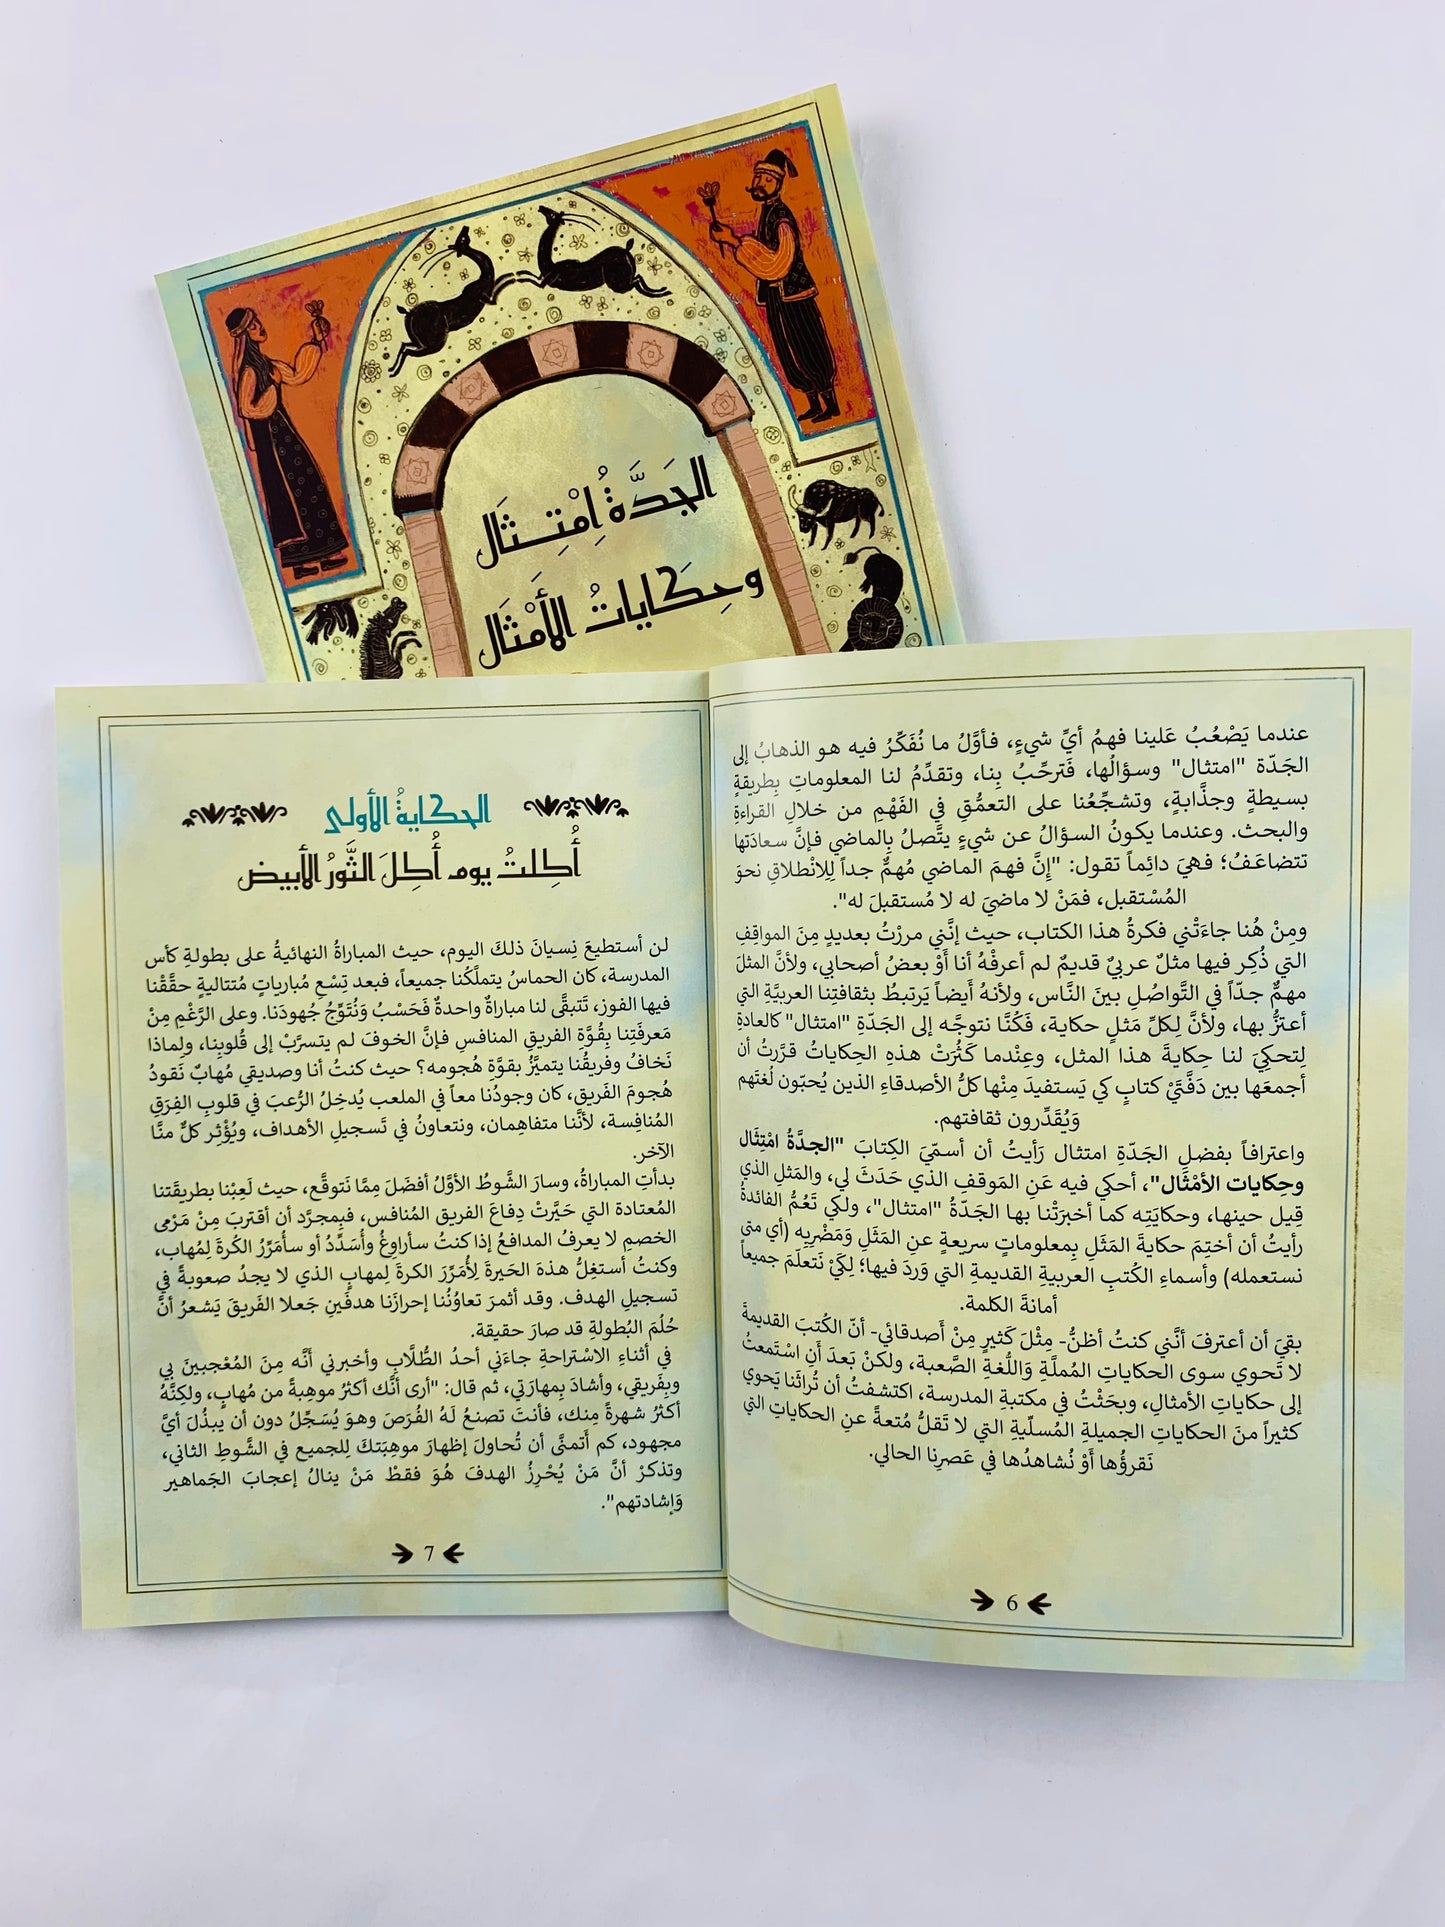 الجَدَّةُ اِمْتِثَال
وحِكَاياتُ الأَمْثَال
عندما يَصْعُبُ عَلينا فهمُ أيِّ شيءٍ، فأوَّلُ ما نُفَكِّرُ فيه هو الذهابُ إلى
الجَدّة "امتثال" وسؤالُها، فَترحِّبُ بِنا، وتقدِّمُ لنا المعلوماتِ بِطريقةٍ
بسيطةٍ وجذَّابةٍ، وتشجِّعُنا على التعمُّقِ في الفَهْمِ من خلالِ القراءةِ
والبحث. وعندما يكونُ السؤالُ عن شيءٍ يتَّصلُ بِالماضي فإنَّ سعادَتها
تتضاعَفُ؛ فهيَ دائِماً تقول: "إنَّ فهمَ الماضي مُهمٌّ جداً لِلِانْطلاقِ نحوَ
المُسْتقبل، فمَنْ لا ماضيَ له لا مُستقبلَ له".
ومِنْ هُنا جاءَتْني فكرةُ هذا الكتاب، حيث إنَّني مررْتُ بعديدٍ مِنَ المواقِفِ
التي ذُكِر فيها مثلٌ عربيٌ قديمٌ لم أعرفْهُ أنا أَوْ بعضُ أصحابي، ولأنَّ المثلَ
مهمٌّ جدّاً في التَّواصُلِ بينَ النَّاس، ولأنهُ أيَضاً يَرتبطُ بثقافتِنا العربيَّةِ التي
أعتزُّ بها، ولأنَّ لِكلِّ مَثلٍ حكاية، فَكُنَّا نتوجَّه إلى الجَدّةِ "امتثال" كالعادةِ
لِتحكِيَ لنا حِكايةَ هذا المثل، وعِنْدما كَثُرَتْ هذهِ الحِكاياتُ قرَّرتُ أن
أجمعَها بين دَفَّتَيْ كتابٍ كي يَستفيدَ مِنْها كلُّ الأصدقاءِ الذين يُحبّون لُغتَهم
وَيُقَدِّرون ثقافتهم.
واعترافاً بفضلِ الجَدّةِ امتثال رَأيتُ أن أسمّيَ الكِتابَ "الجدَّةُ امْتِثَال
وحِكايات الأمْثَال"، أحكي فيه عَنِ المَوقفِ الذي حَدَثَ لي، والمَثلِ الذي
قِيل حينها، وحكايَتِه كما أخبرَتْنا بها الجَدّةُ "امتثال"، ولكي تَعُمُّ الفائدةُ
رأيتُ أن أختِمَ حكايةَ المَثَلِ بِمعلوماتٍ سريعةٍ عنِ المَثَلِ وَمَضْرِبِه (أي متى
نستعمله) وأسماءِ الكُتبِ العربيةِ القديمةِ التي وَردَ فيها؛ لِكَيْ نَتعلَمَ جميعاً
أمانةَ الكلمة.
بقيَ أن أعترفَ أنَّني كنتُ أظنُّ- مِثْلَ كَثيرٍ مِنْ أصدقائي- أنّ الكُتبَ القديمةَ
لا تَحوي سوى الحكاياتِ المُملَّةِ وَاللُّغةِ الصَّعبة، ولكنْ بَعدَ أنِ اسْتَمعتُ
إلى حكاياتِ الأمثالِ، وبحَثْتُ في مكتبةِ المدرسة، اكتشفتُ أن تُراثَنا يَحوي
كثيراً منَ الحكاياتِ الجميلةِ المُسلّيةِ التي لا تَقلُّ مُتعةً عنِ الحكاياتِ التي
نَقرؤُها أَوْ نُشاهدُها في عَصرِنا الحالي.
6
الحكايةُ الأولى
أُكِلتُ يوم أُكِلَ الثَّورُ الأبيض
لن أستطيعَ نِسيانَ ذلكَ اليوم، حيث المباراةُ النهائيةُ على بطولةِ كأس
المدرسة، كان الحماسُ يتملَّكُنا جميعاً، فبعد تِسْعِ مُبارياتٍ مُتتاليةٍ حقَّقْنا
فيها الفوز، تَتبقَّى لنا مباراةٌ واحدةٌ فَحَسْبُ وَنُتَوِّجُ جُهودَنا. وعلى الرَّغْمِ مِنْ
مَعرفتِنا بِقُوَّةِ الفريقِ المنافسِ فإنَّ الخوفَ لم يتسرَّبْ إلى قُلوبِنا، ولِماذا
نَخافُ وفريقُنا يتميَّزُ بقوَّةِ هُجومه؟ حيث كنتُ أنا وصديقي مُهابٌ نَقودُ
هُجومَ الفَريق، كان وجودُنا معاً في الملعب يُدخِلُ الرُّعبَ في قلوبِ الفِرَقِ
المُنافِسة، لأنَّنا متفاهِمان، ونتعاونُ في تَسجيلِ الأهداف، ويُؤْثِر كلٌّ منَّا
الآخر.
بدأتِ المباراةُ، وسارَ الشَّوطُ الأوَّلُ أفضَلَ مِمَّا نَتوقَّع، حيث لَعِبْنا بطريقَتنا
المُعتادة التي حَيَّرتْ دِفاعَ الفريق المُنافس، فبِمجرَّد أن أقتربَ مِنْ مَرْمى
الخصمِ لا يعرفُ المدافعُ إذا كنتُ سأراوِغُ وأُسَدِّدُ أو سأُمَرِّرُ الكُرةَ لِمُهاب،
وكنتُ أستغِلُّ هذهَ الحَيرةَ لِأُمَرِّرَ الكرةَ لِمهابٍ الذي لا يجدُ صعوبةً في
تسجيلِ الهدف. وقد أثمرَ تعاوُنُنا إحرازَنا هدفَينِ جَعلا الفَريقَ يَشعرُ أنَّ
حُلُمَ البُطولةِ قد صارَ حقيقة.
في أثناءِ الاسْتراحةِ جاءَني أحدُ الطُّلَّابِ وأخبرني أنَّه مِنَ المُعْجبينَ بي
وبِفَريقي، وأشادَ بِمهارَتي، ثم قال: "أرى أنَّك أكثرُ موهِبةً من مُهابٍ، ولكنَّهُ
أكثرُ شهرةً مِنك، فأنتَ تصنعُ لَهُ الفُرَصَ وهوَ يُسَجِّلُ دون أن يبذُلَ أيَّ
مجهود، كم أَتمنَّى أن تُحاولَ إظهارَ موهِبَتكَ لِلجميع في الشَّوطِ الثاني،
وتذكرْ أنَّ مَنْ يُحْرِزُ الهدفَ هُوَ فقطْ مَنْ ينالُ إعجابَ الجَماهير
وَإشادتهم".
7